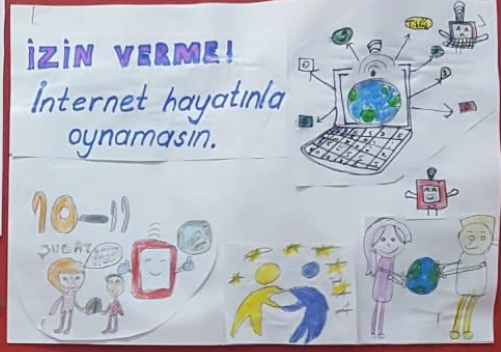 İZİN VERME!
İnternet hayatınla
oynamasın.
10-11
ŞUBAT